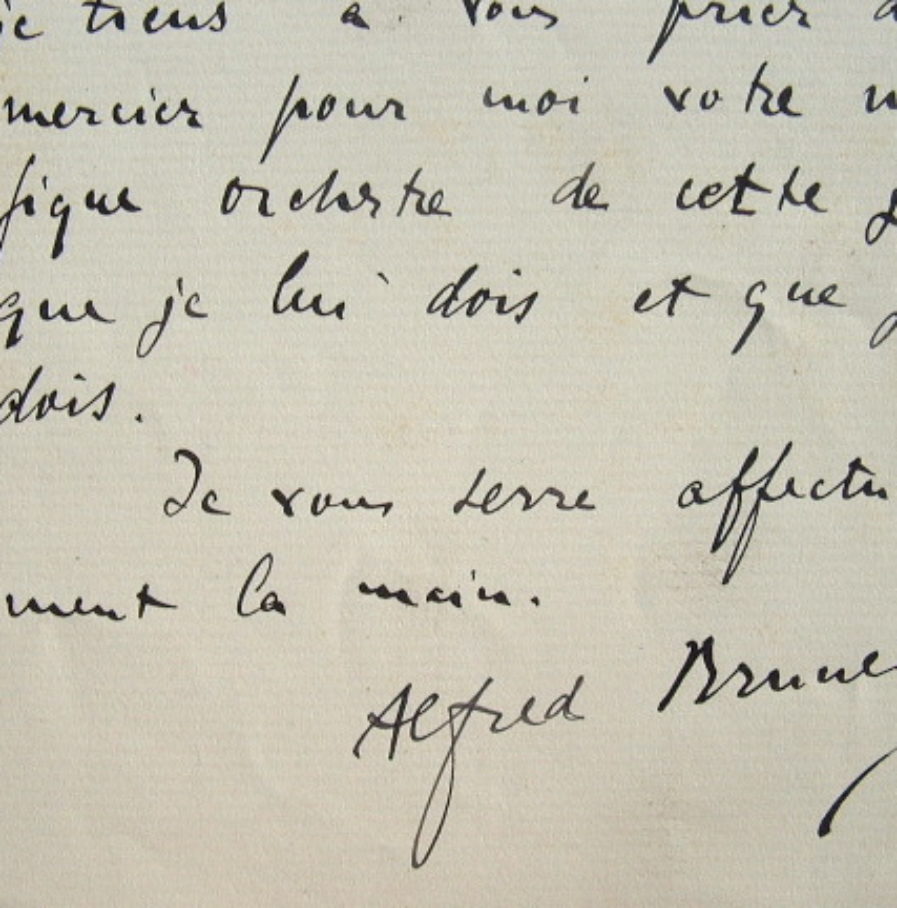 je tiens à vous prier d
mercier pour moi votre m
fique orchestre de cette g
que je lui dois et que j
dois.
Je vous serre affectu
ment la main.
Alfred Brune